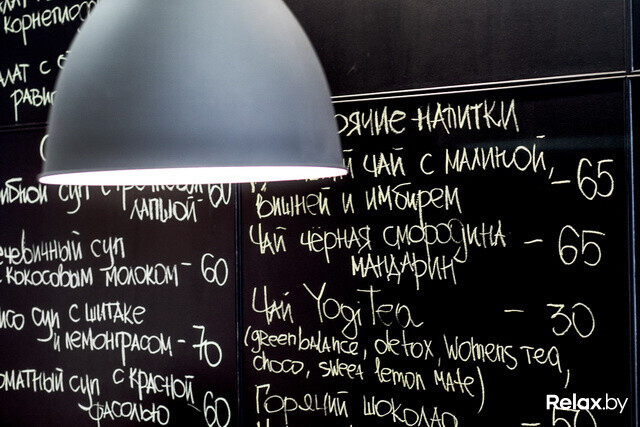 корнепло
лат с
равио
суп с гречневой 60
лапшой
чечевичный суп
с кокосовым молоком - 60
мисо суп с шитаке
и лемонграсом - 70
томатный суп с красной
фасолью - 60
горячие напитки
чай с малиной, - 65
вишней и имбирем
чай чёрная смородина - 65
мандарин
Чай Yogi Tea - 30
(green balance, detox, womens tea,
choco, sweet lemon mate)
Горячий шоколад
50
Relax.by